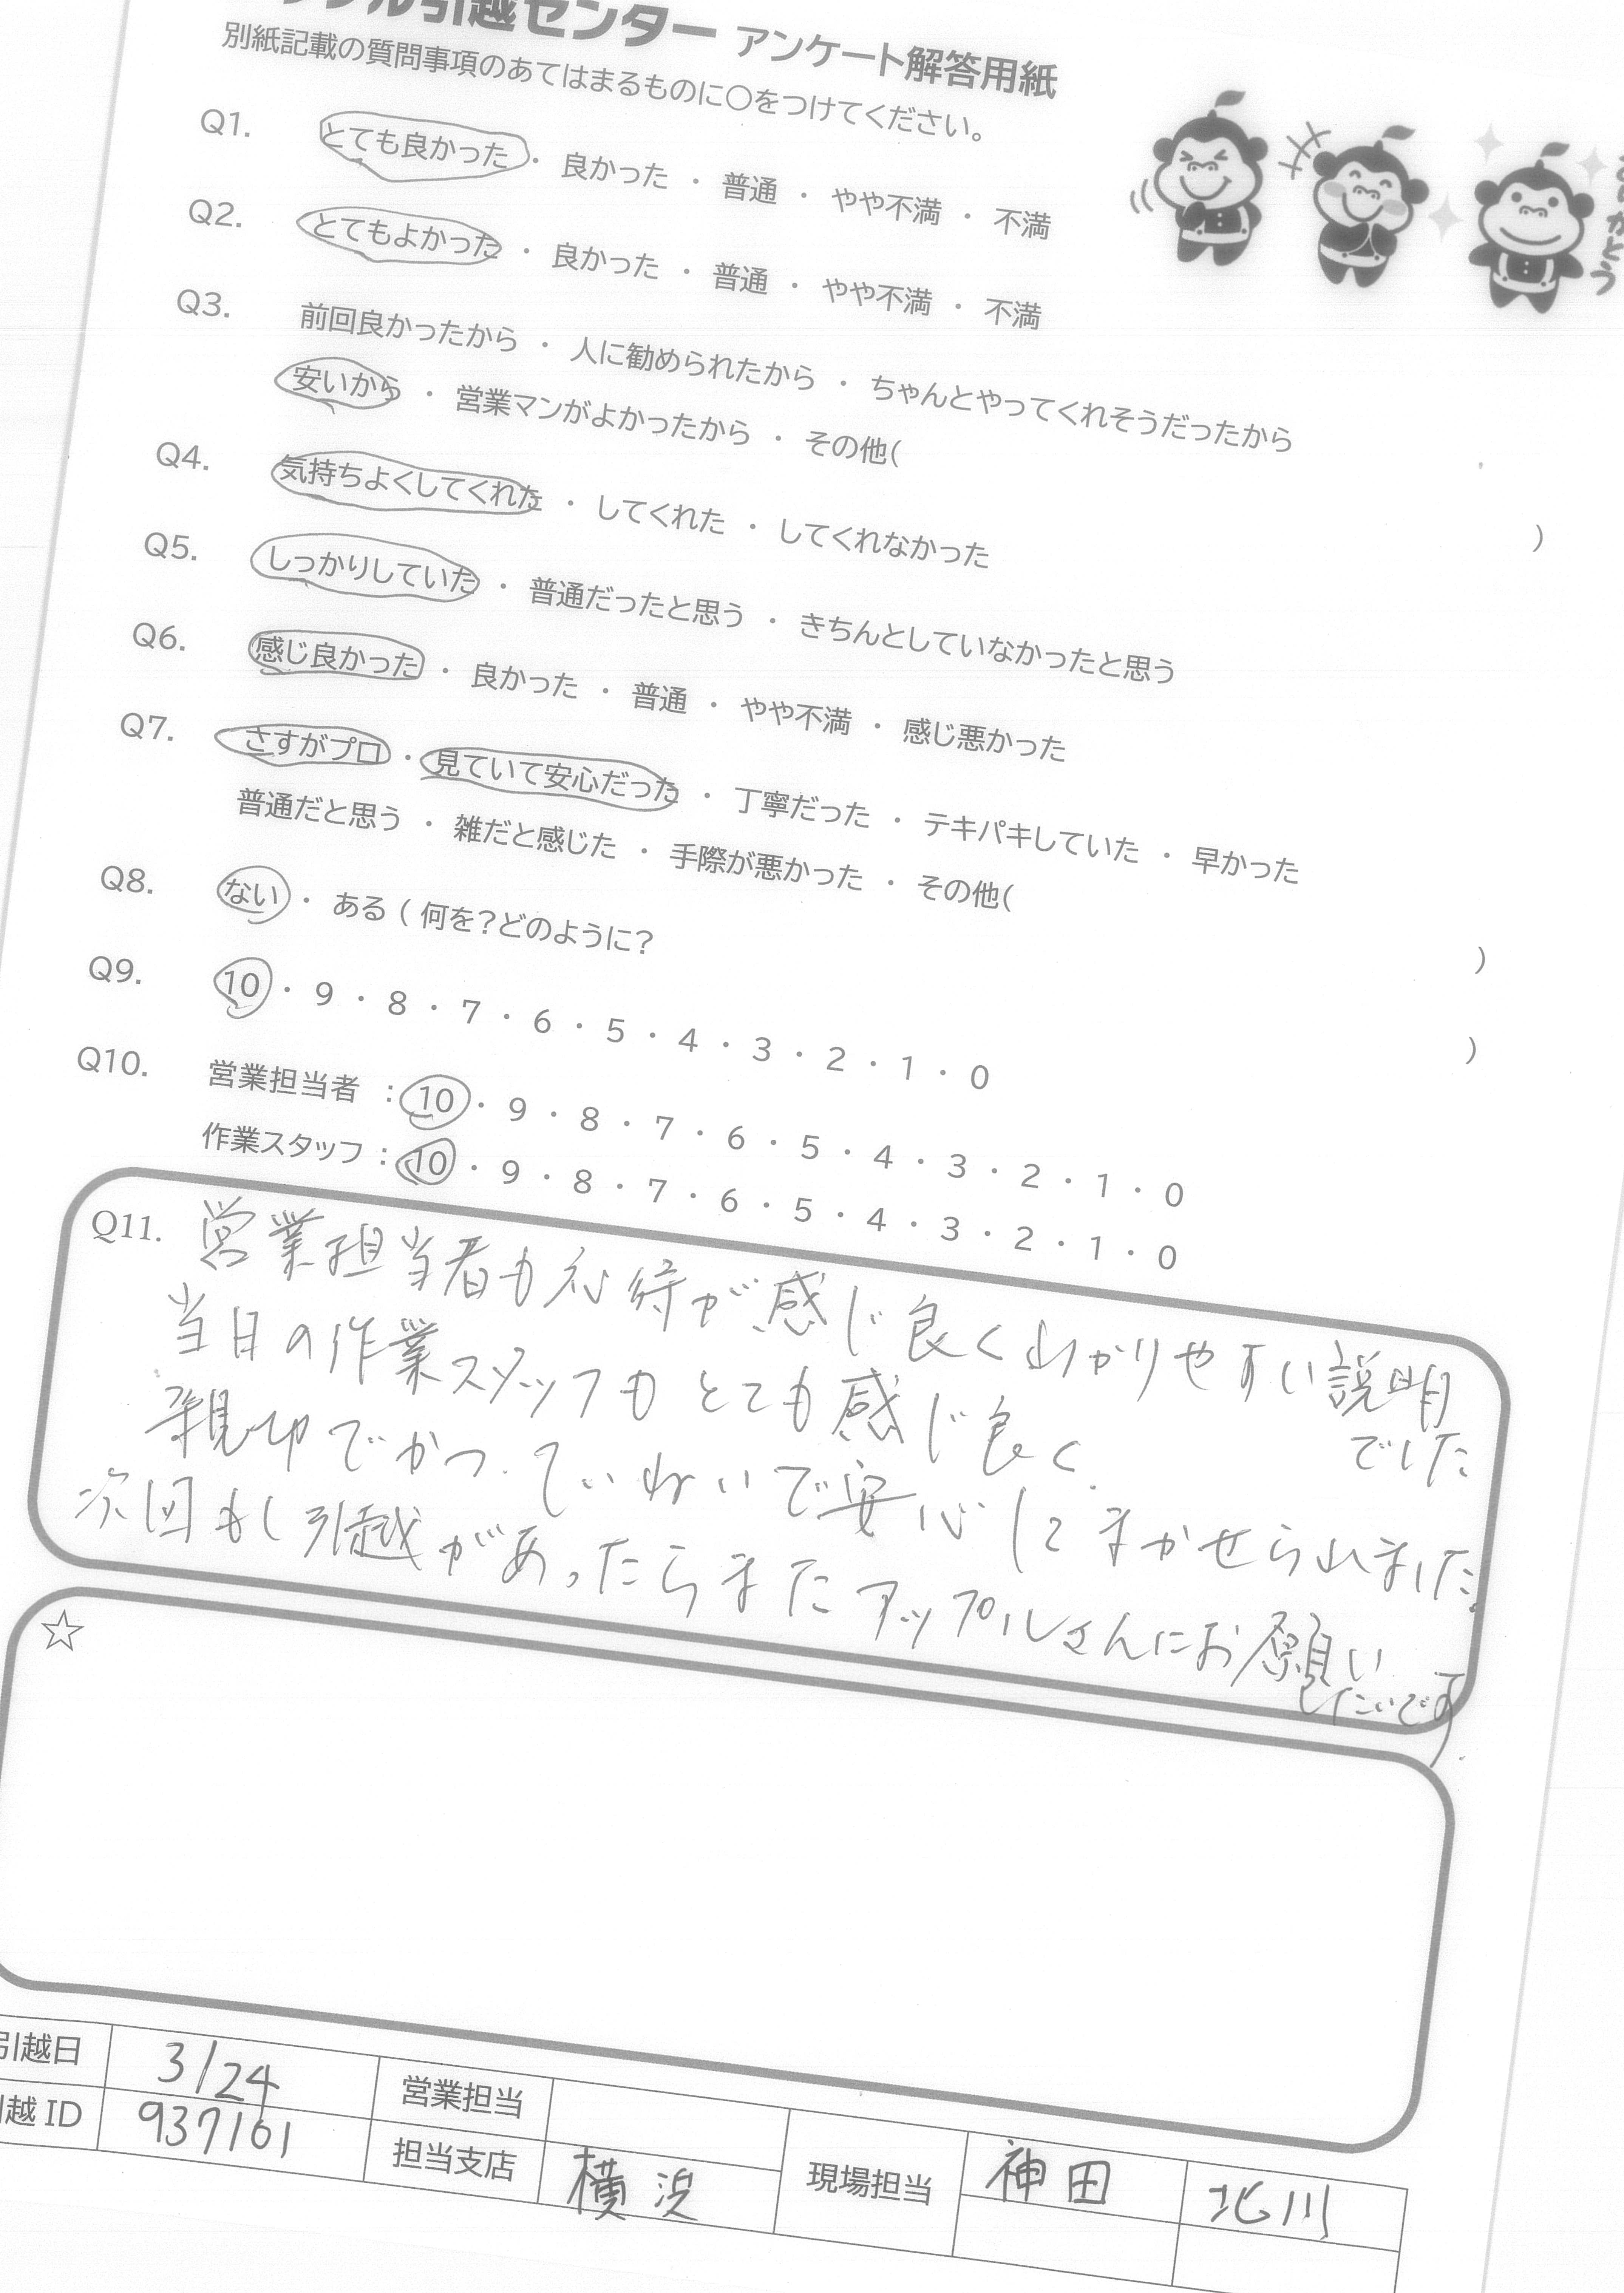 引越センター アンケート解答用紙
別紙記載の質問事項のあてはまるものに○をつけてください。
Q1. とても良かった ・ 良かった ・ 普通 ・ やや不満 ・ 不満
Q2. とてもよかった ・ 良かった ・ 普通 ・ やや不満 ・ 不満
Q3. 前回良かったから ・ 人に勧められたから ・ ちゃんとやってくれそうだったから
安いから ・ 営業マンがよかったから ・ その他( )
Q4. 気持ちよくしてくれた ・ してくれた ・ してくれなかった
Q5. しっかりしていた ・ 普通だったと思う ・ きちんとしていなかったと思う
Q6. 感じ良かった ・ 良かった ・ 普通 ・ やや不満 ・ 感じ悪かった
Q7. さすがプロ ・ 見ていて安心だった ・ 丁寧だった ・ テキパキしていた ・ 早かった
普通だと思う ・ 雑だと感じた ・ 手際が悪かった ・ その他( )
Q8. ない ・ ある ( 何を?どのように? )
Q9. 10 ・ 9 ・ 8 ・ 7 ・ 6 ・ 5 ・ 4 ・ 3 ・ 2 ・ 1 ・ 0
Q10. 営業担当者 : 10 ・ 9 ・ 8 ・ 7 ・ 6 ・ 5 ・ 4 ・ 3 ・ 2 ・ 1 ・ 0
作業スタッフ : 10 ・ 9 ・ 8 ・ 7 ・ 6 ・ 5 ・ 4 ・ 3 ・ 2 ・ 1 ・ 0
Q11. 営業担当者も 感じ良くわかりやすい説明
でした
当日の作業スタッフもとても感じ良く
親切でかつ、ていねいで安心してまかせられました。
次回もし引越があったらまたアップルさんにお願い
したいです.
☆
引越日 3/24 営業担当
越 ID 937101 担当支店 横浜 現場担当 神田 北川